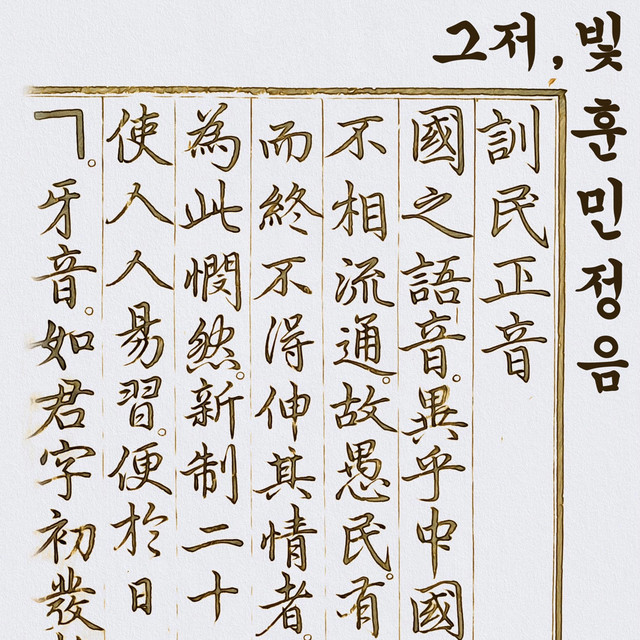 그저, 빛
훈민정음
訓民正音
國之語音。異乎中國
不相流通。故愚民。有
而終不得伸其情者。
為此憫然。新制二十
使人人易習。便於日
ㄱ。牙音。如君字初發